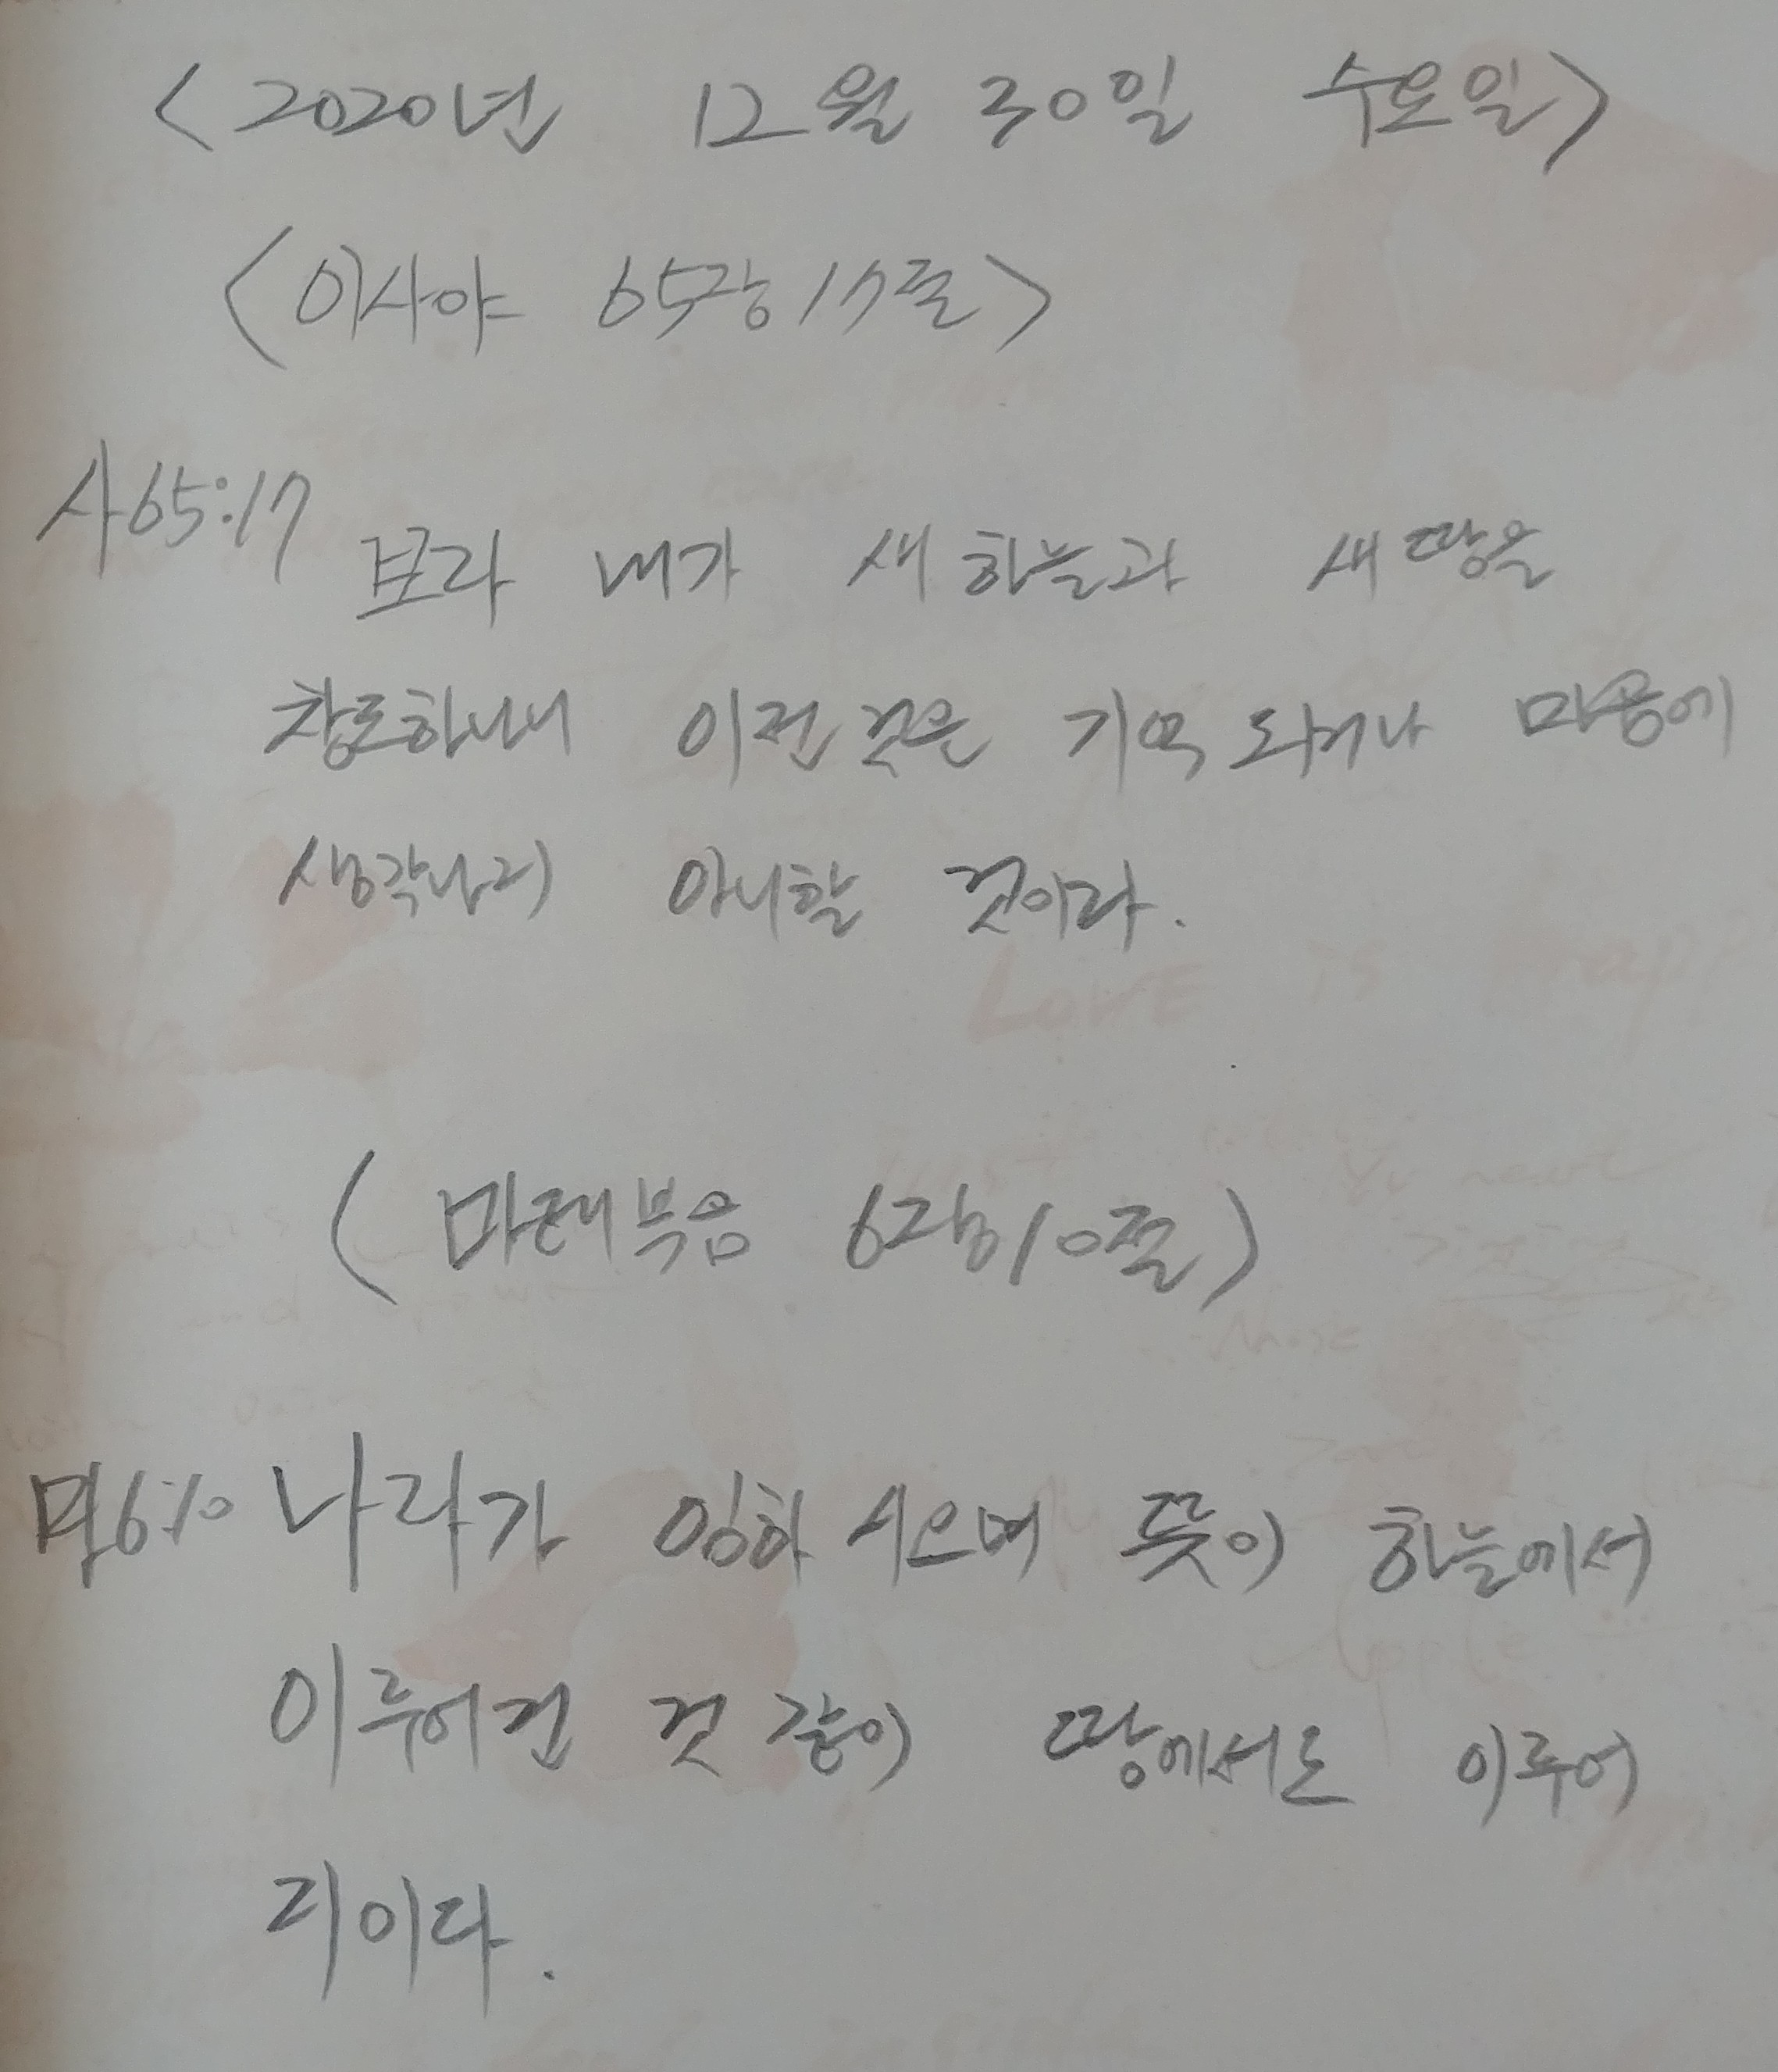 <2020년 12월 30일 수요일>
<이사야 65장 17절>
사65:17
보라 내가 새 하늘과 새 땅을
창조하나니 이전 것은 기억 되거나 마음에
생각나지 아니할 것이라.
LOVE is
(마태복음 6장 10절)
마6:10 나라가 임하시오며 뜻이 하늘에서
이루어진 것 같이 땅에서도 이루어
지이다.